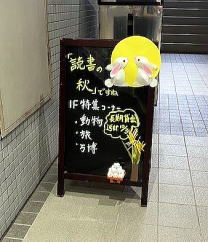 「読書の
秋」ですね
1F特集コーナー
・動物
・旅
・万博
長期貸出